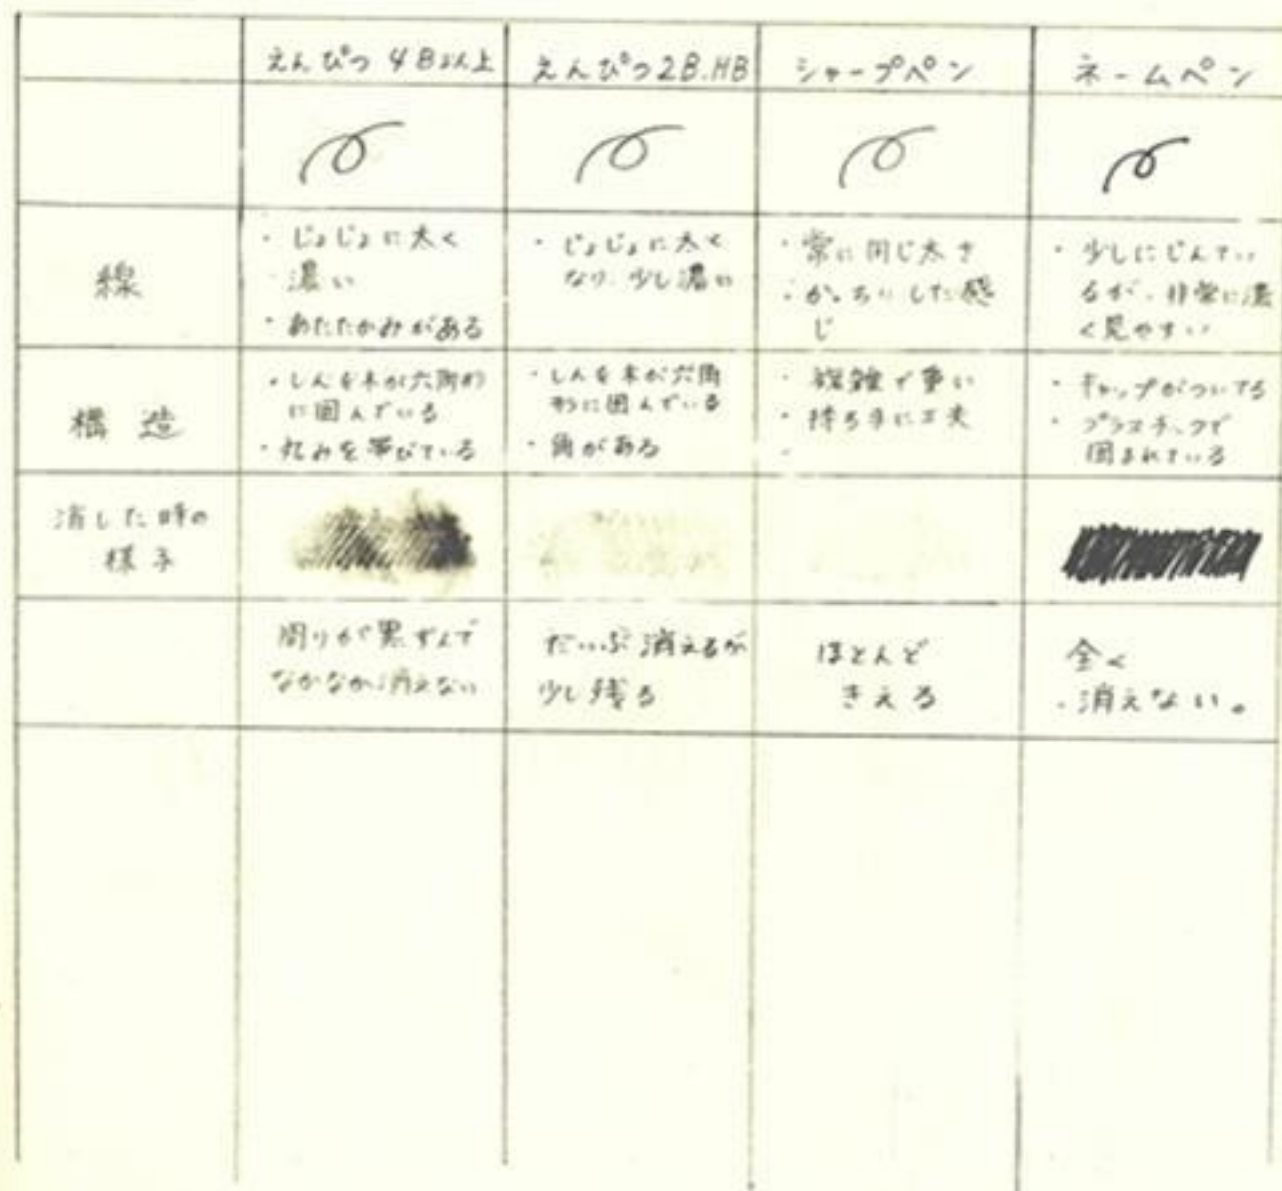 えんぴつ 4B以上
えんぴつ2B.HB
シャープペン
ネームペン
線
・じょじょに太く
濃い
・あたたかみがある
・じょじょに太く
なり、少し濃い
・常に同じ太さ
・かっちりした感
じ
・少しにじんでい
るが、非常に濃
く見やすい
構造
・しんを木が六角形
に囲んでいる
・丸みを帯びている
・しんを木が六角
形に囲んでいる
・角がある
・複雑で重い
・持ち手に工夫
・キャップがついてる
・プラスチックで
囲まれている
消した時の
様子
周りが黒ずんで
なかなか消えない
だいぶ消えるが
少し残る
ほとんど
きえる
全く
・消えない。